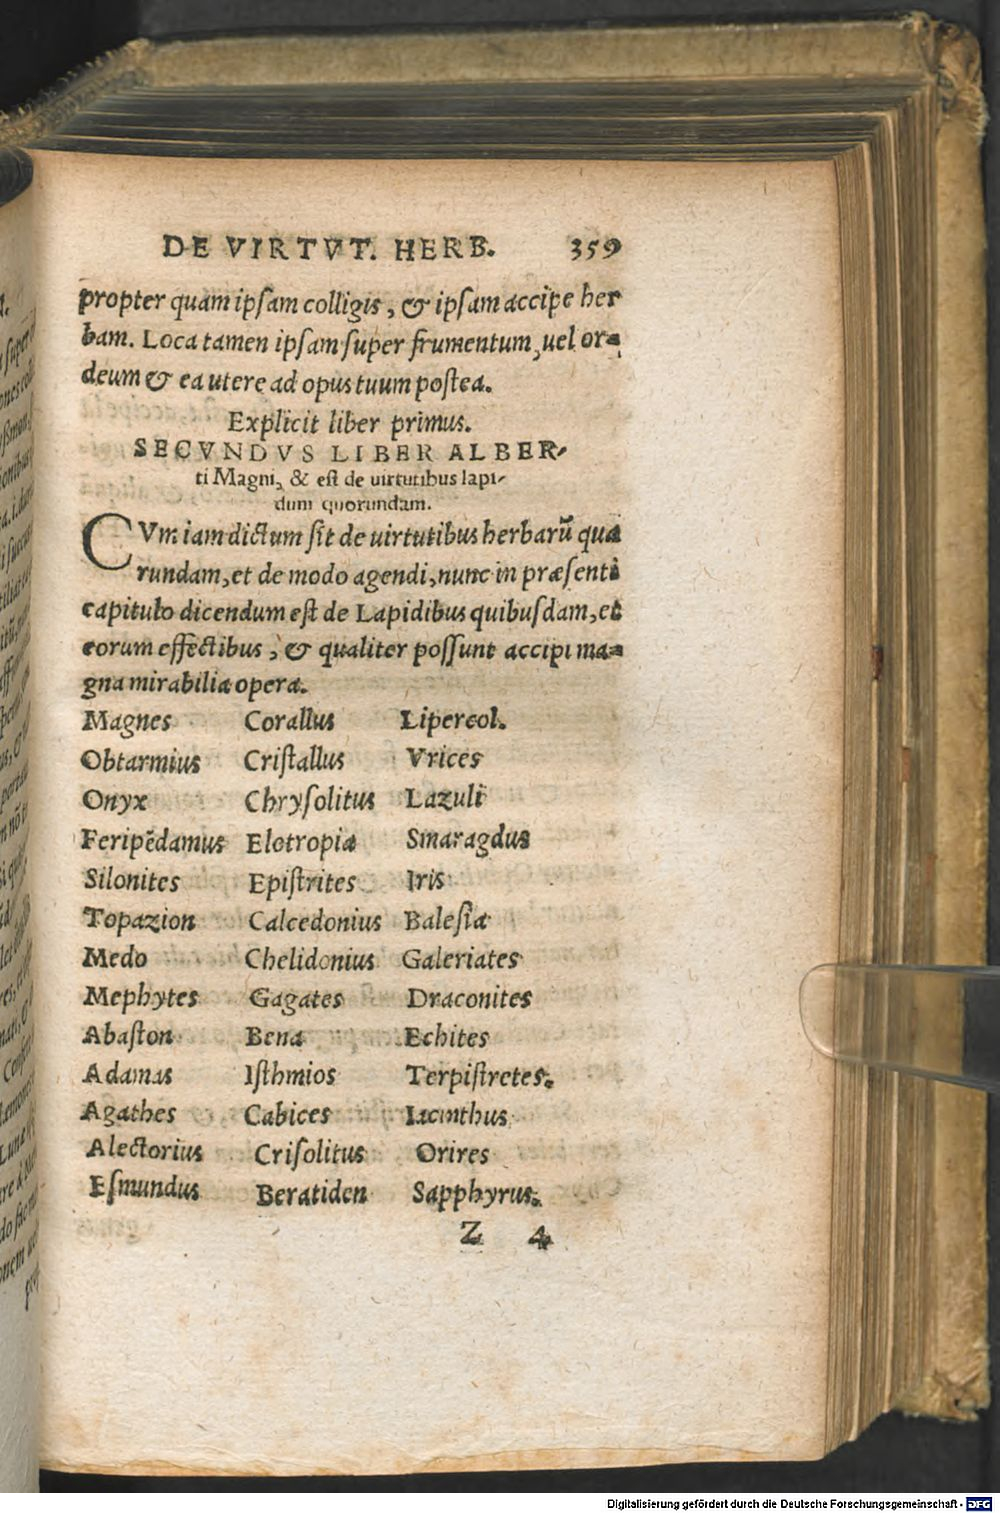 DE VIRTVT. HERB. 359
propter quam ipſam colligis, & ipſam accipe her
bam. Loca tamen ipſam ſuper frumentum, uel or=
deum & ea utere ad opus tuum poſtea.
Explicit liber primus.
SECVNDVS LIBER ALBER-
ti Magni, & eſt de uirtutibus lapi-
dum quorundam.
CVm iam dictum ſit de uirtutibus herbarũ qua
rundam, et de modo agendi, nunc in præſenti
capitulo dicendum eſt de Lapidibus quibuſdam, et
eorum effectibus, & qualiter poſſunt accipi ma=
gna mirabilia opera.
Magnes Corallus Lipercol.
Obtarmius Criſtallus Vrices
Onyx Chryſolitus Lazuli
Feripẽdamus Elotropia Smaragdus
Silonites Epiſtrites Iris
Topazion Calcedonius Baleſia
Medo Chelidonius Galeriates
Mephytes Gagates Draconites
Abaſton Bena Echites
Adamas Iſthmios Terpiſtretes.
Agathes Cabices Iacinthus
Alectorius Criſolitus Orires
Eſmundus Beratiden Sapphyrus.
Z 4
Digitalisierung gefördert durch die Deutsche Forschungsgemeinschaft - DFG